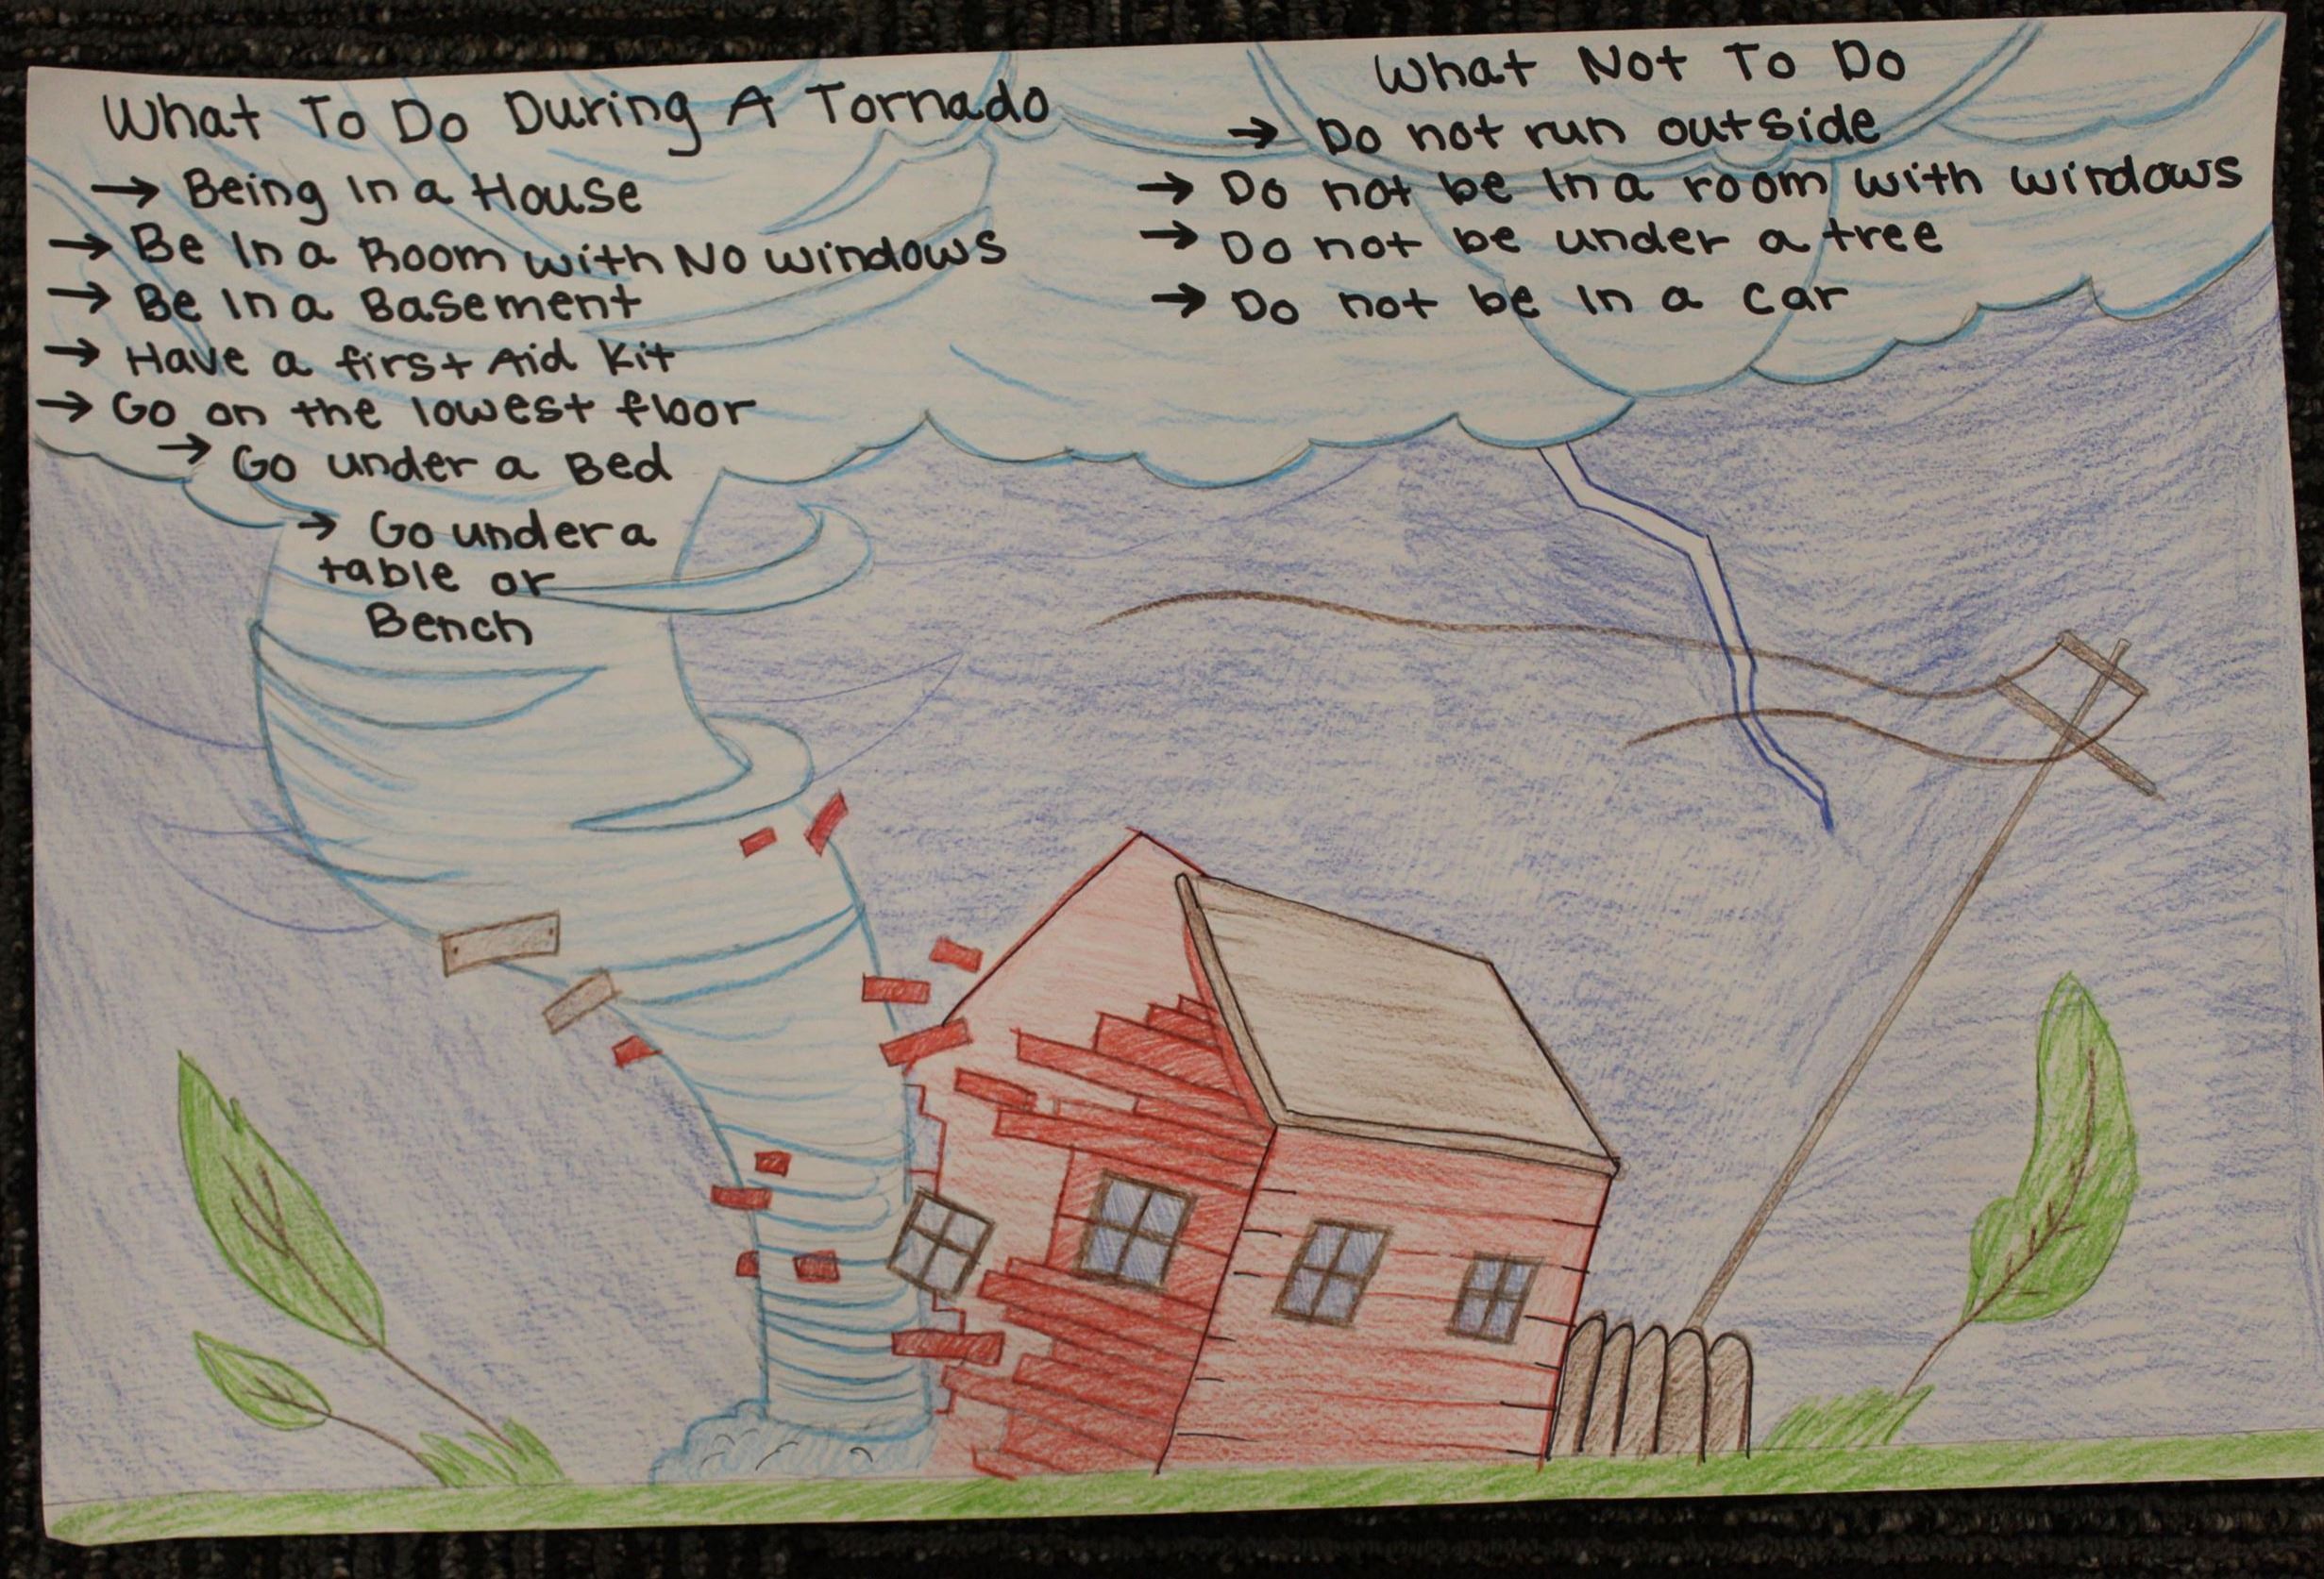 What To Do During A Tornado
→ Being In a House
→ Be In a Room with No windows
→ Be In a Basement
→ Have a first Aid Kit
→ Go on the lowest floor
→ Go under a Bed
→ Go under a
table or
Bench
What Not To Do
→ Do not run outside
→ Do not be In a room with windows
→ Do not be under a tree
→ Do not be in a car